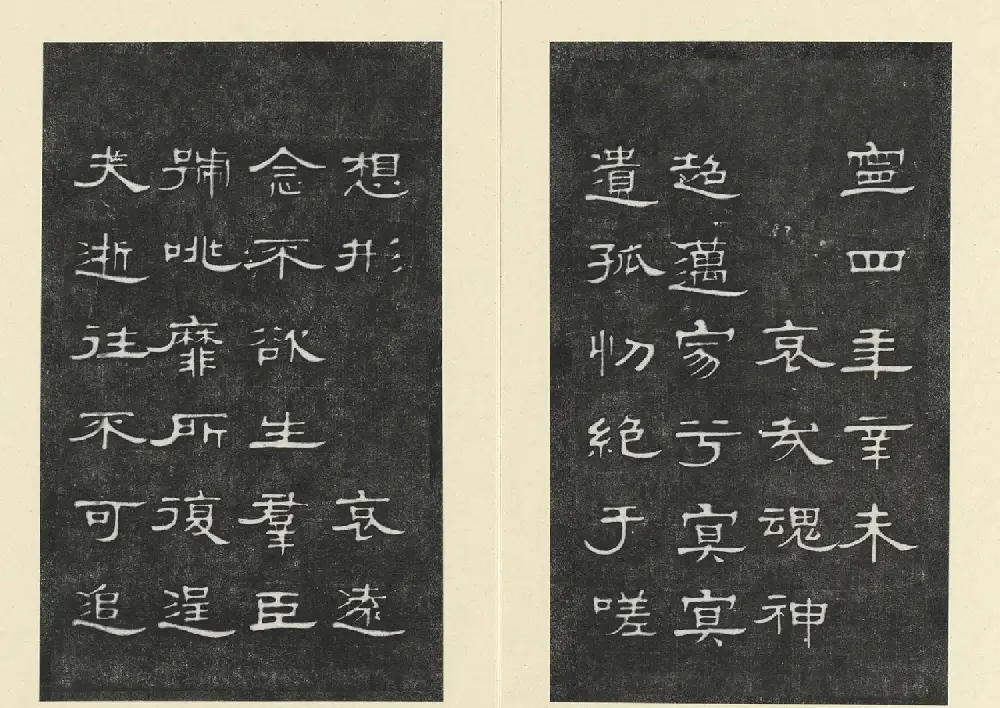 寧四年辛未
哀哉魂神
超邁家兮冥冥
遺孤忉絕于嗟
想形 哀遠
念不欲生羣臣
號咷靡所復逞
夫逝往不可追